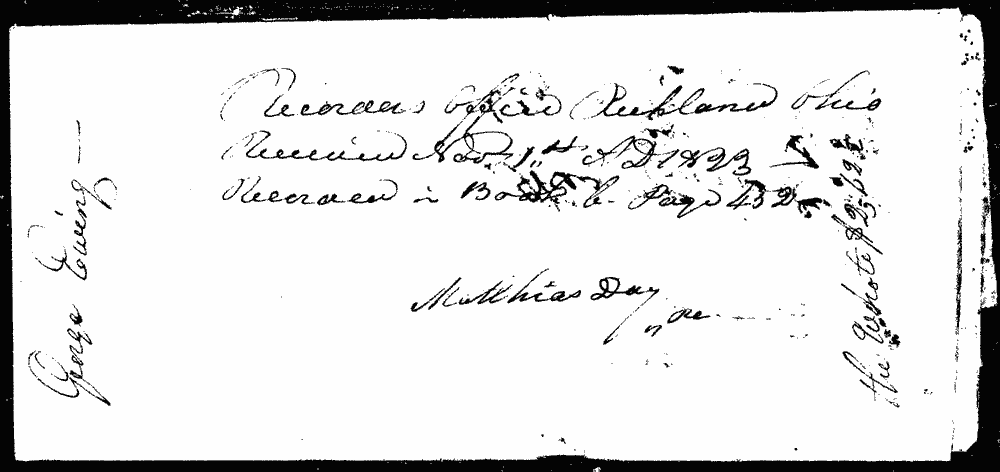 Recorders Office Richland Ohio
Received Nov. 1st A D 1823
Recorded in Book 6 Page 432
Matthias Day
George Ewing
the Whole $2